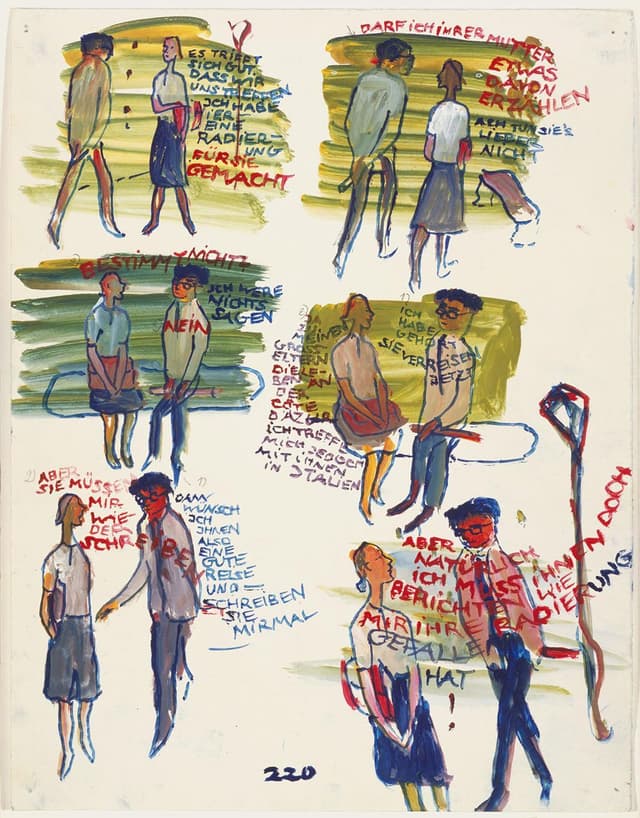 ES TRIFFT
SICH GUT
DASS WIR
UNS TREFFEN
ICH HABE
IER
EINE
RADIER-
UNG
FÜR SIE
GEMACHT
DARF ICH IHRER MUTTER
ETWAS
DAVON
ERZÄHLEN
ACH TUN SIE'S
LIEBER
NICHT
BESTIMMT NICHT?
NEIN
ICH WERE
NICHTS
SAGEN
1)
ICH
HABE
GEHÖRT
SIE VERREISEN
JETZT
2)
MEINEN
GROS
ELTERN
DIE LE-
BEN AN
DER
CÔTE
DAZUR
ICH TREFFE
MICH JEDOCH
MIT IHNEN
IN ITALIEN
1)
DANN
WÜNSCH
ICH
IHNEN
ALSO
EINE
GUTE
REISE
UND
SCHREIBEN
SIE
MIR MAL
2)
ABER
SIE MÜSSEN
MIR
WIE
DER
SCHREIBEN
ABER
NATÜRLICH
ICH MUSS IHNEN DOCH
BERICHTEN WIE
MIR IHRE RADIERUNG
GEFALLEN
HAT
!
220